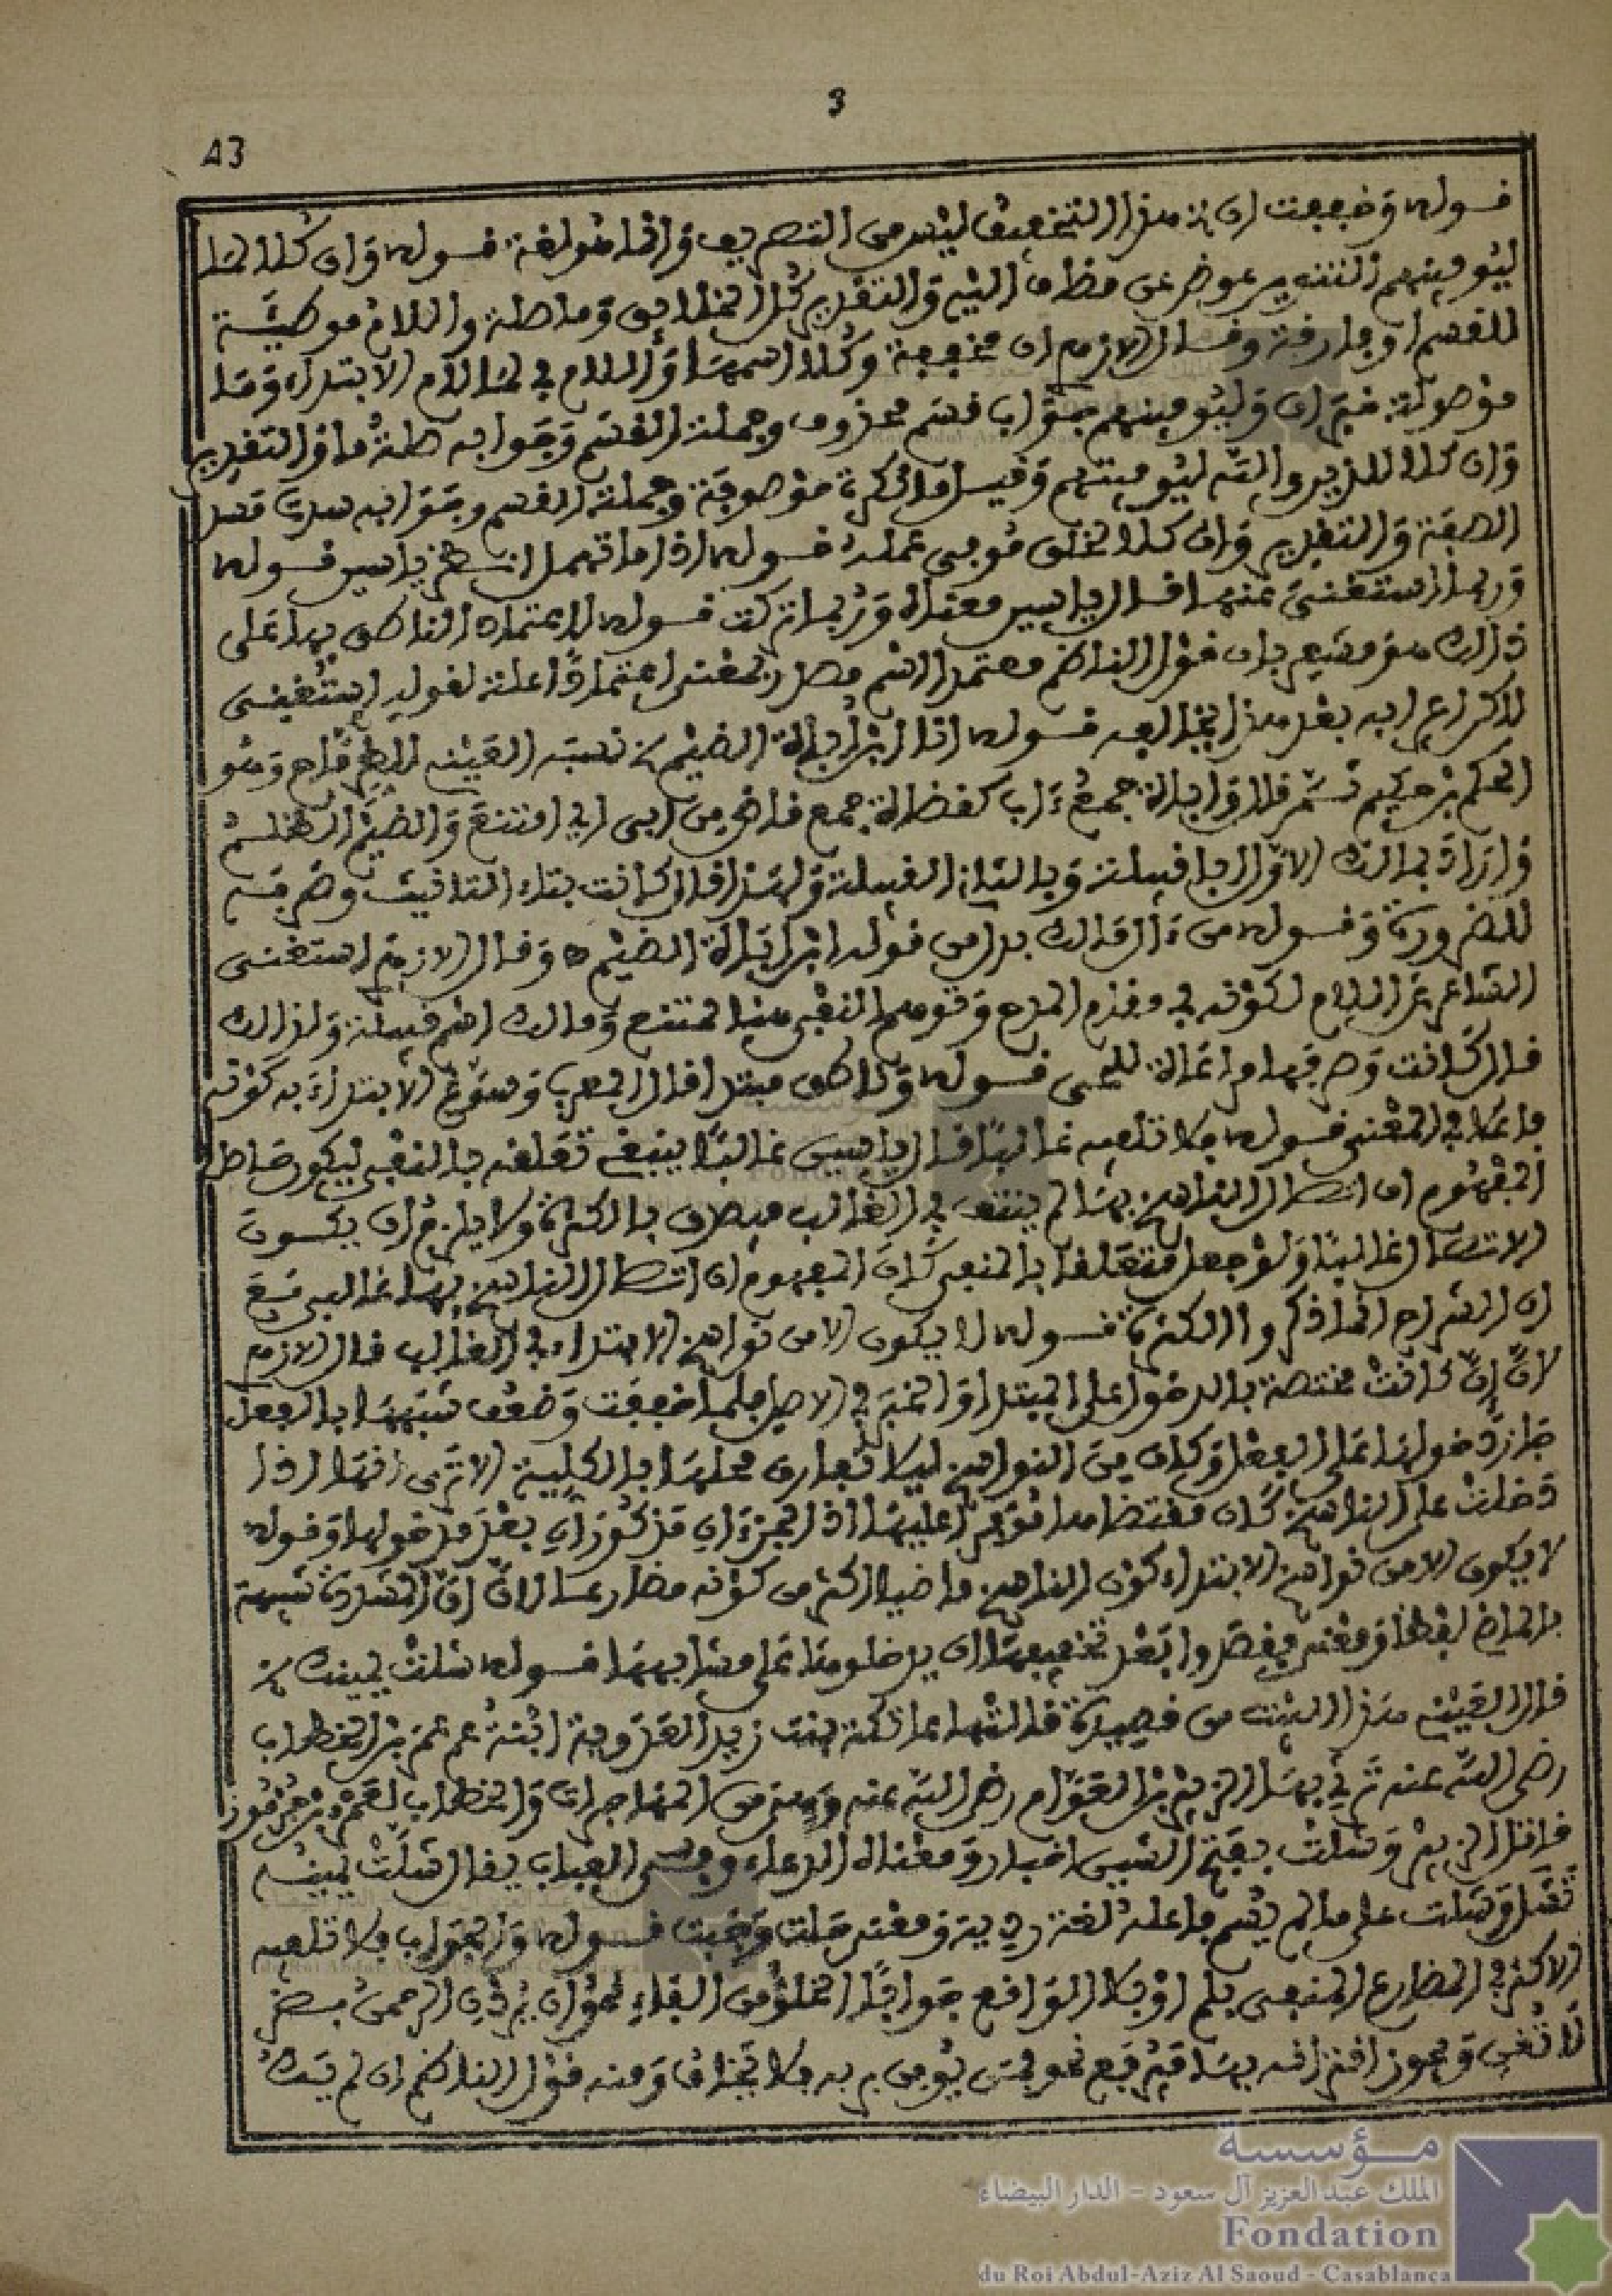 3
A3
قوله وخففت ان هذا التخفيف ليس من التصريف وانما هو لغة قوله وان كلا لما
ليوفينهم التنوين عوض عن مضاف اليه والتقدير كل الخلائق وما صلة واللام موطئة
للقسم او فارقة وقال الازهري ان مخففة وكلا اسمها واللام في لما لام الابتداء وما
موصولة خبر ان وليوفينهم جواب قسم محذوف وجملة القسم وجوابه صلة ما والتقدير
وان كلا للذين والله ليوفينهم وقيل ما نكرة موصوفة وجملة القسم وجوابه سدت مسد
الصفة والتقدير وان كلا لخلق موفى عمله قوله اذا ما تهمل انظر ياسين قوله
وربما استغني عنها قال ياسين معناه وربما تركت قوله لاعتماد الناطق بها على
ذالك هو مشعر بان قول الناظم معتمدا اسم مصدر بمعنى اعتمادا علة لقوله استغني
لاكن اعرابه بعد هذا يخالفه قوله انا ابن اباة الضيم نسبه العيني للطرماح وهو
الحكم بن حكيم ثم قال واباة جمع ءاب كقضاة جمع قاض من ابى اي امتنع والضيم الظلم
واراد بمالك الاول ابا قبيلة وبالثاني القبيلة ولهذا قال كانت بتاء التانيث وصرفه
للضرورة وقوله من ءال مالك بدل من قوله ابن اباة الضيم وقال الازهري استغنى
الشاعر عن اللام لكونه في مقام المدح وتوهم النفي هنا ممتنع ومالك اسم قبيلة ولذالك
قال كانت وصرفها مراعاة للحي قوله وناطق مبتدا قال المعرب وسوغ الابتداء به كونه
فاعلا في المعنى قوله فلا تلفيه غالبا قال ياسين غالبا ينبغي تعلقه بالنفي ليكون حاصل
المفهوم ان اتصال الناسخ بها لم ينتف في الغالب فيصدق بالكثرة ولا يلزم ان يكون
الاتصال غالبا ولو جعل متعلقا بالمنفي كان المفهوم ان اتصال الناسخ بها غالبي مع
ان الشراح انما ذكروا الكثرة قوله لا يكون الا من نواسخ الابتداء في الغالب قال الازهري
لان ان كانت مختصة بالدخول على المبتدا والخبر في الاصل فلما خففت وضعف شبهها بالفعل
جاز دخولها على الفعل وكان من النواسخ ليلا تفارق محلها بالكلية الا ترى انها اذا
دخلت على الناسخ كان مقتضاها موفرا عليها اذ الجزءان مذكوران بعد مدخولها وقوله
لا يكون الا من نواسخ الابتداء كون الناسخ ماضيا اكثر من كونه مضارعا لان ان المشددة شبهة
بالماضي لفظا ومعنى فقصدوا بعد تخفيفها ان يدخلوها على مشابهها قوله شلت يمينك
قال العيني هذا البيت من قصيدة قالتها عاتكة بنت زيد العدوية ابنة عم عمر بن الخطاب
رضي الله عنه ترثي بها الزبير بن العوام رضي الله عنه وهي من المهاجرات والخطاب لعمرو بن جرموز
قاتل الزبير وشلت بفتح الشين اخبار ومعناه الدعاء وفي العباب يقال شلت يمينه
تشل وشلت على ما لم يسم فاعله لغة ردية ومعنى حلت وجبت قوله والجواب فلا تلفيه
الاكثر في المضارع المنفي بلم او بلا الواقع جوابا الخلو من الفاء نحو ان يردن الرحمن بضر
لا تغن ويجوز اقترانه بها فيرفع نحو فمن يؤمن بربه فلا يخاف ومنه قول الناظم ان لم يك
مؤسسة
الملك عبد العزيز آل سعود - الدار البيضاء
Fondation
du Roi Abdul-Aziz Al Saoud - Casablanca